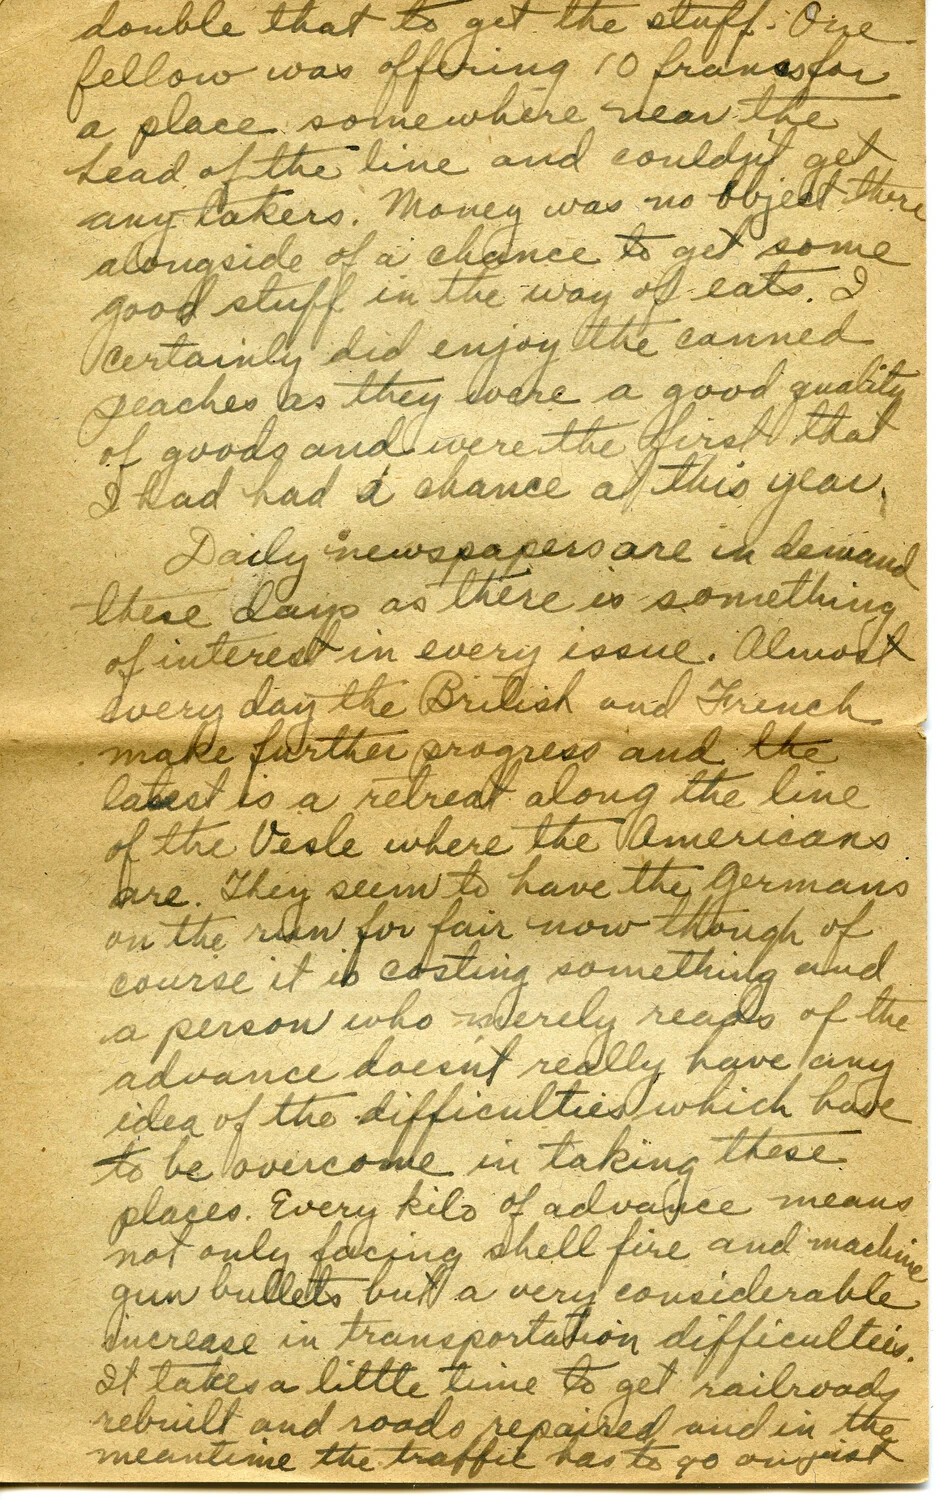 double that to get the stuff. One
fellow was offering 10 francs for
a place somewhere near the
head of the line and couldn't get
any takers. Money was no object there
alongside of a chance to get some
good stuff in the way of eats. I
certainly did enjoy the canned
peaches as they were a good quality
of goods and were the first that
I had had a chance at this year.
Daily newspapers are in demand
these days as there is something
of interest in every issue. Almost
every day the British and French
make further progress and the
latest is a retreat along the line
of the Vesle where the Americans
are. They seem to have the Germans
on the run for fair now though of
course it is costing something and
a person who merely reads of the
advance doesn't really have any
idea of the difficulties which have
to be overcome in taking these
places. Every kilo of advance means
not only facing shell fire and machine
gun bullets but a very considerable
increase in transportation difficulties.
It takes a little time to get railroads
rebuilt and roads repaired and in the
meantime the traffic has to go on just